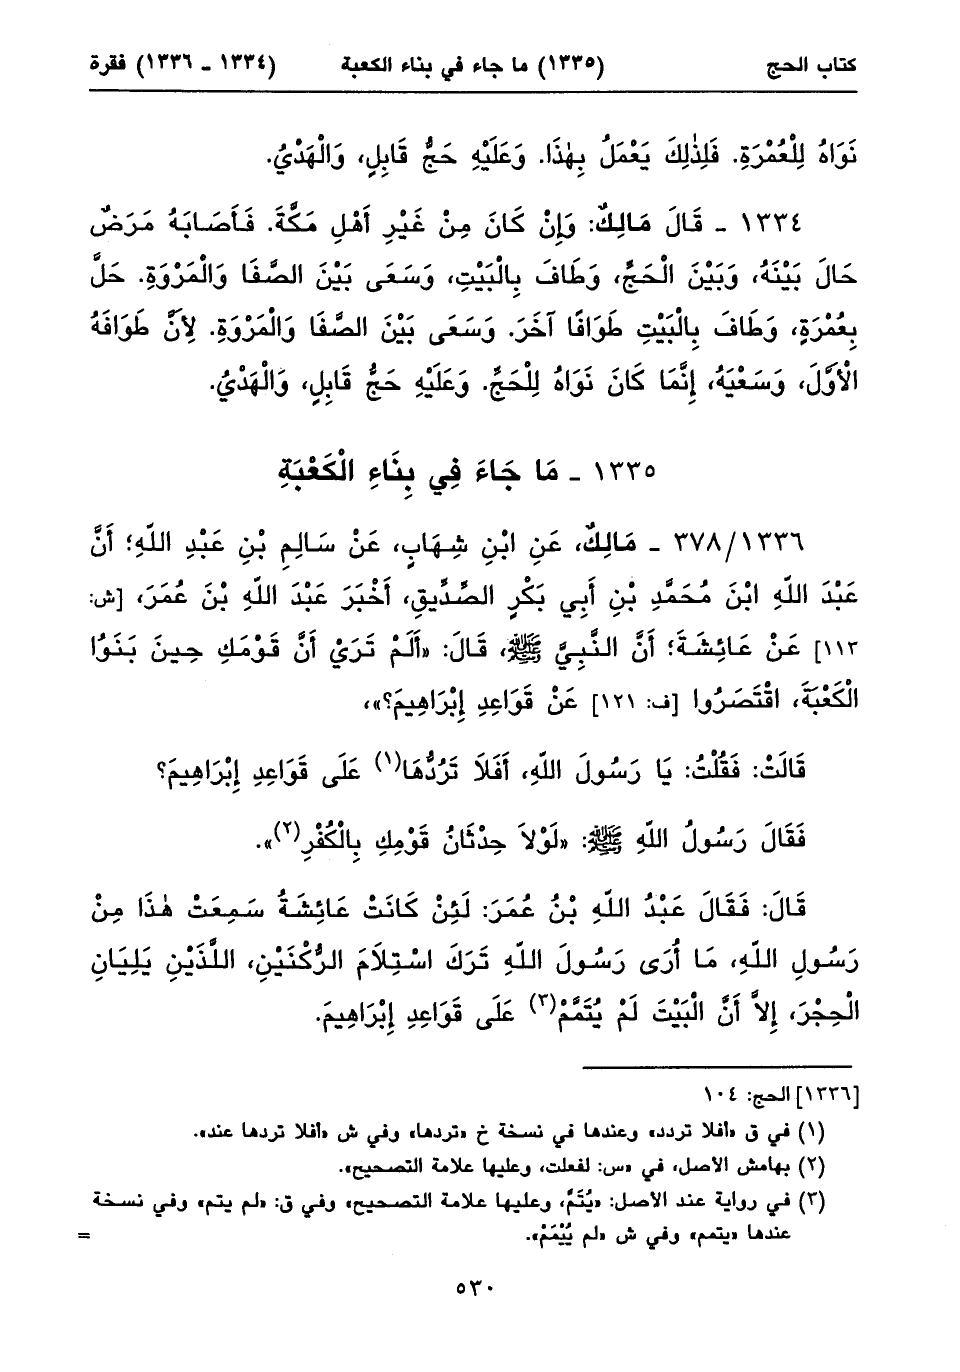 كتاب الحج (١٣٣٥) ما جاء في بناء الكعبة (١٣٣٤ - ١٣٣٦) فقرة
نَوَاهُ لِلْعُمْرَةِ. فَلِذٰلِكَ يَعْمَلُ بِهٰذَا. وَعَلَيْهِ حَجُّ قَابِلٍ، وَالْهَدْيُ.
١٣٣٤ - قَالَ مَالِكٌ: وَإِنْ كَانَ مِنْ غَيْرِ أَهْلِ مَكَّةَ. فَأَصَابَهُ مَرَضٌ
حَالَ بَيْنَهُ، وَبَيْنَ الْحَجِّ، وَطَافَ بِالْبَيْتِ، وَسَعَى بَيْنَ الصَّفَا وَالْمَرْوَةِ. حَلَّ
بِعُمْرَةٍ، وَطَافَ بِالْبَيْتِ طَوَافًا آخَرَ. وَسَعَى بَيْنَ الصَّفَا وَالْمَرْوَةِ. لِأَنَّ طَوَافَهُ
الْأَوَّلَ، وَسَعْيَهُ، إِنَّمَا كَانَ نَوَاهُ لِلْحَجِّ. وَعَلَيْهِ حَجُّ قَابِلٍ، وَالْهَدْيُ.
١٣٣٥ - مَا جَاءَ فِي بِنَاءِ الْكَعْبَةِ
٣٧٨/١٣٣٦ - مَالِكٌ، عَنِ ابْنِ شِهَابٍ، عَنْ سَالِمِ بْنِ عَبْدِ اللَّهِ؛ أَنَّ
عَبْدَ اللَّهِ ابْنَ مُحَمَّدِ بْنِ أَبِي بَكْرٍ الصِّدِّيقِ، أَخْبَرَ عَبْدَ اللَّهِ بْنَ عُمَرَ، [ش:
١١٣] عَنْ عَائِشَةَ؛ أَنَّ النَّبِيَّ ﷺ، قَالَ: «أَلَمْ تَرَيْ أَنَّ قَوْمَكِ حِينَ بَنَوُا
الْكَعْبَةَ، اقْتَصَرُوا [ف: ١٢١] عَنْ قَوَاعِدِ إِبْرَاهِيمَ؟»،
قَالَتْ: فَقُلْتُ: يَا رَسُولَ اللَّهِ، أَفَلَا تَرُدُّهَا(١) عَلَى قَوَاعِدِ إِبْرَاهِيمَ؟
فَقَالَ رَسُولُ اللَّهِ ﷺ: «لَوْلاَ حِدْثَانُ قَوْمِكِ بِالْكُفْرِ(٢)».
قَالَ: فَقَالَ عَبْدُ اللَّهِ بْنُ عُمَرَ: لَئِنْ كَانَتْ عَائِشَةُ سَمِعَتْ هٰذَا مِنْ
رَسُولِ اللَّهِ، مَا أُرَى رَسُولَ اللَّهِ تَرَكَ اسْتِلَامَ الرُّكْنَيْنِ، اللَّذَيْنِ يَلِيَانِ
الْحِجْرَ، إِلاَّ أَنَّ الْبَيْتَ لَمْ يُتَمَّمْ(٣) عَلَى قَوَاعِدِ إِبْرَاهِيمَ.
[١٣٣٦] الحج: ١٠٤
(١) في ق «أفلا تردد» وعندها في نسخة خ «تردها» وفي ش «أفلا تردها عند».
(٢) بهامش الأصل، في «س: لفعلت، وعليها علامة التصحيح».
(٣) في رواية عند الأصل: «يُتَمَّ، وعليها علامة التصحيح»، وفي ق: «لم يتم» وفي نسخة
عندها «يتمم» وفي ش «لم يُيْمَمْ». =
٥٣٠